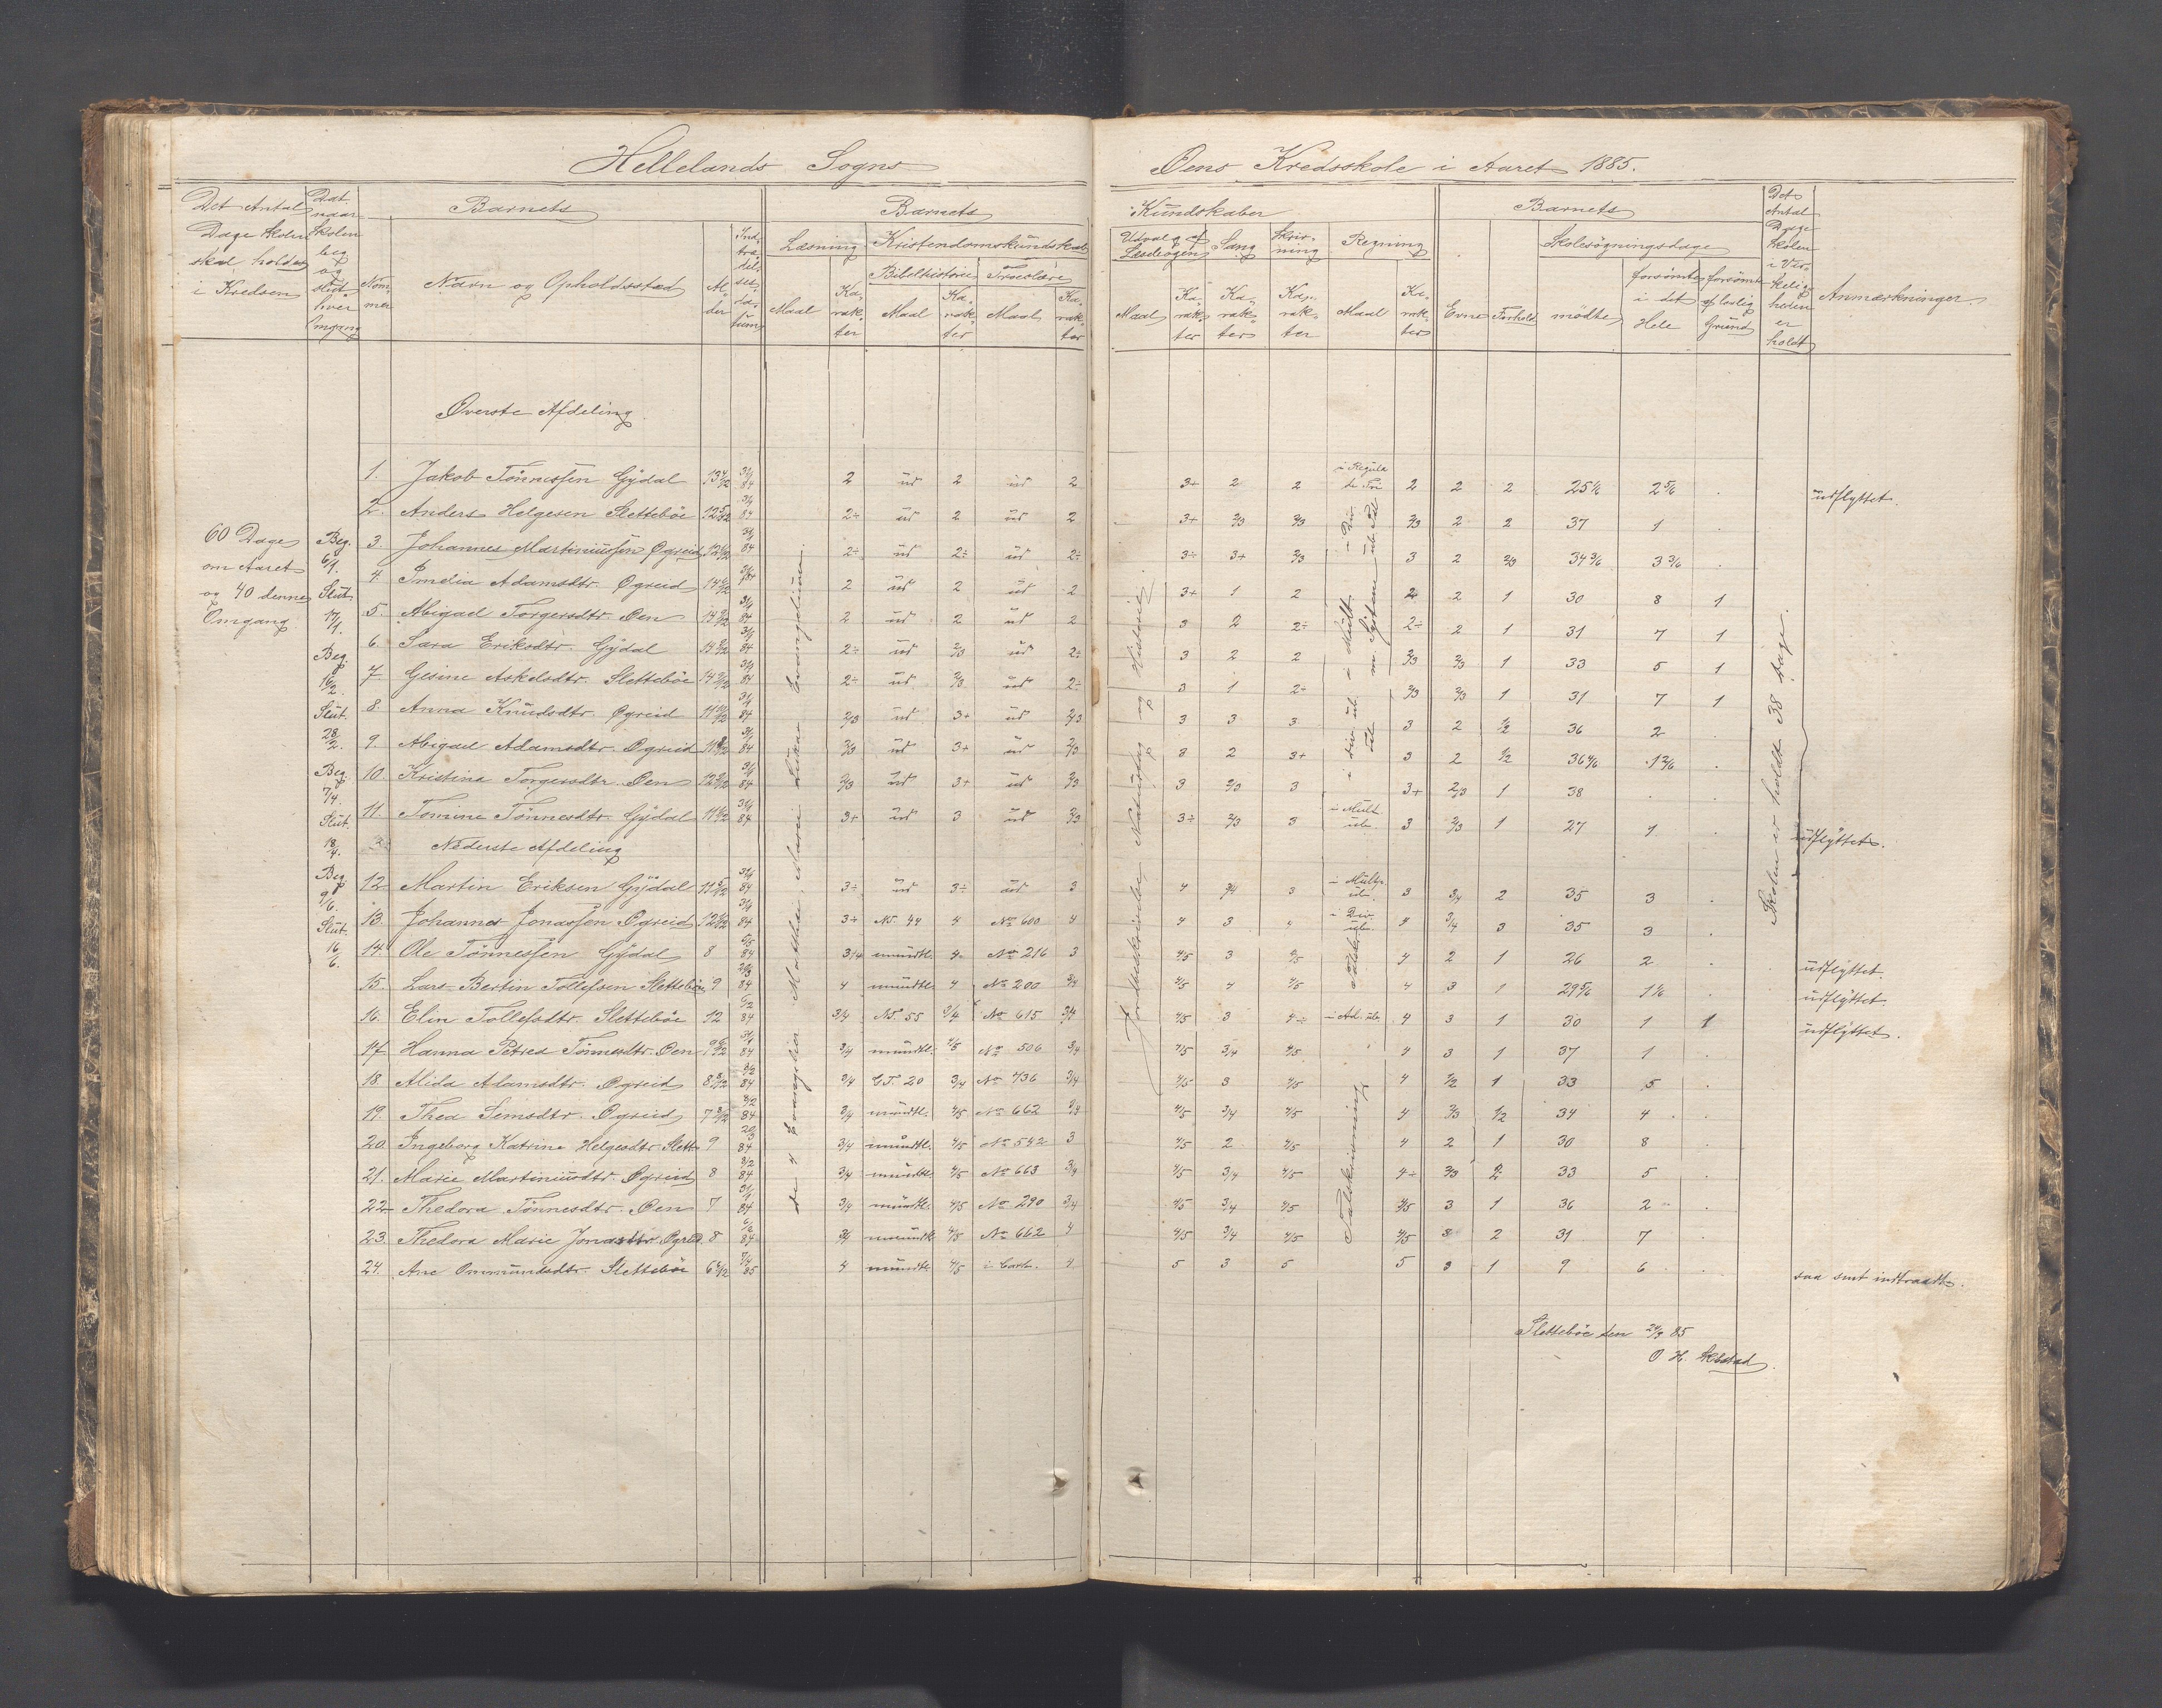 Hellelands Sogns Øens Kredsskole i Aaret 1885.
Det Antal Dage Skolen skal holdes i Kredsen
Dat. naar Skolen beg. og slut. hver Omgang
Nommer
Barnets
Navn og Opholdssted
Alder
Indtrædelsesdatum
Barnets Kundskaber
Læsning
Maal
Karakter
Kristendomskundskab
Bibelhistorie
Maal
Karakter
Troeslære
Maal
Karakter
Udvalg af Læsebogen
Maal
Karakter
Sang
Karakter
Skrivning
Karakter
Regning
Maal
Karakter
Barnets
Evne
Forhold
Skolesøgningsdage
mødte
forsømte i det Hele
forsømte af lovlig Grund
Det Antal Dage Skolen i Virkeligheden er holdt
Anmærkninger.
Øverste Afdeling.
60 Dage om Aaret og 40 denne Omgang
Beg. 6/1. Slut 17/1.
Beg. 16/2. Slut. 28/2.
Beg. 7/4. Slut. 18/4.
Beg. 9/6. Slut. 16/6.
de 4 Evangelier Matthæi, Marci Lukas Evangelium.
Jordbeskrivelse, Naturfag og Historie.
Skolen er holdt 38 Dage.
1. Jakob Tønnessen Gÿdal 13 4/12 31/1 84 2 ud 2 ud 2 3+ 2 2 i Regula de Tri 2 2 2 25 1/6 2 5/6 . udflyttet.
2. Anders Helgesen Slettebøe 12 5/12 31/1 84 2÷ ud 2 ud 2 3+ 2/3 2/3 2/3 2 2 37 1 .
3. Johannes Martiniussen Øgreid 12 31/1 84 2÷ ud 2÷ ud 2÷ 3÷ 3+ 2/3 3 2 2/3 34 3/6 3 3/6 .
4. Imelia Adamsdtr. Øgreid 14 31/1 84 2 ud 2 ud 2 3+ 1 2 2 2 1 30 8 1
5. Abigael Torgersdtr. Øen 14 31/1 84 2 ud 2 ud 2 3 2 2÷ 2÷ 2 1 31 7 1
6. Sara Eriksdtr. Gÿdal 14 31/1 84 2÷ ud 2/3 ud 2÷ 3 2 2 2/3 2/3 1 33 5 1
7. Gesine Askelsdtr. Slettebøe 14 31/1 84 2÷ ud 2/3 ud 2÷ 3 1 2÷ 2/3 2/3 1 31 7 1
8. Anna Knudsdtr. Øgreid 11 31/1 84 2/3 ud 3+ ud 2/3 3 3 3 3 2 1/2 36 2 .
9. Abigael Adamsdtr. Øgreid 11 31/1 84 2/3 ud 3+ ud 2/3 3 2 3+ 3 2 1/2 36 4/6 1 2/6 .
10. Kristina Torgersdtr. Øen 12 31/1 84 2/3 ud 3+ ud 2/3 3 2/3 3 3+ 2/3 1 38 . .
11. Tomine Tønnesdtr. Gÿdal 11 31/1 84 3+ ud 3 ud 2/3 3÷ 2/3 3 i Mult. ub. 3 2/3 1 27 1 . udflyttet.
Nederste Afdeling
12. Martin Eriksen Gÿdal 11 5/12 31/1 84 3÷ ud 3÷ ud 3 4 3/4 3 i Mult. ub. 3 3/4 2 35 3 .
13. Johannes Jonassen Øgreid 12 31/1 84 3+ No. 44 4 No 600 4 4 3 4 i Div. ub. 4 3/4 3 35 3 .
14. Ole Tønnessen Gÿdal 8 84 3/4 mundtl. 4 No 216 3 4/5 3 4/5 4 2 1 26 2 . udflyttet.
15. Lars Bertin Tollefsen Slettebøe 9 84 4 mundtl. 4 No 200 3/4 4/5 4 4/5 4 3 1 29 5/6 1 1/6 . udflyttet.
16. Elen Tollefsdtr. Slettebøe 12 6/2 84 3/4 No. 55 3/4 No 615 3/4 4/5 3 4÷ i Ad. ub. 4 3 1 30 1 1 udflyttet.
17. Hanna Petrea Tønnesdtr. Øen 9 31/1 84 3/4 mundtl. 4/5 No 506 3/4 4/5 3/4 4/5 4 3 1 37 1 .
18. Alida Adamsdtr. Øgreid 8 84 3/4 G.T. 20 3/4 No 736 3/4 4/5 3 4/5 4 1/2 1 33 5 .
19. Thea Simsdtr. Øgreid 7 84 3/4 mundtl. 4/5 No 662 3/4 4/5 3/4 4/5 4 2/3 1/2 34 4 .
20. Ingeborg Katrine Helgesdtr. Slett. 9 84 3/4 mundtl. 4/5 No 542 3 4/5 2 4/5 4 2 1 30 8 .
21. Marie Martiniusdtr. Øgreid 8 84 3/4 mundtl. 4/5 No 663 3/4 4/5 3/4 4/5 4÷ 2/3 2 33 5 .
22. Thedora Tønnesdtr. Øen 7 31/1 84 3/4 mundtl. 4/5 No 290 3/4 4/5 3/4 4/5 4/5 3 1 36 2 .
23. Thedora Marie Jonasdtr. Øgreid. 8 84 3/4 mundtl. 4/5 No 662 4 4/5 3/4 4/5 4/5 3 2 31 7 .
24. Ane Ommundsdtr. Slettebøe 6 7/4 85 4 mundtl. 4/5 4 5 3 5 5 3 1 9 6 . saa sent indtraadt.
Talskrivning
Slettebøe den 24/9 85
O H. Skadstad.